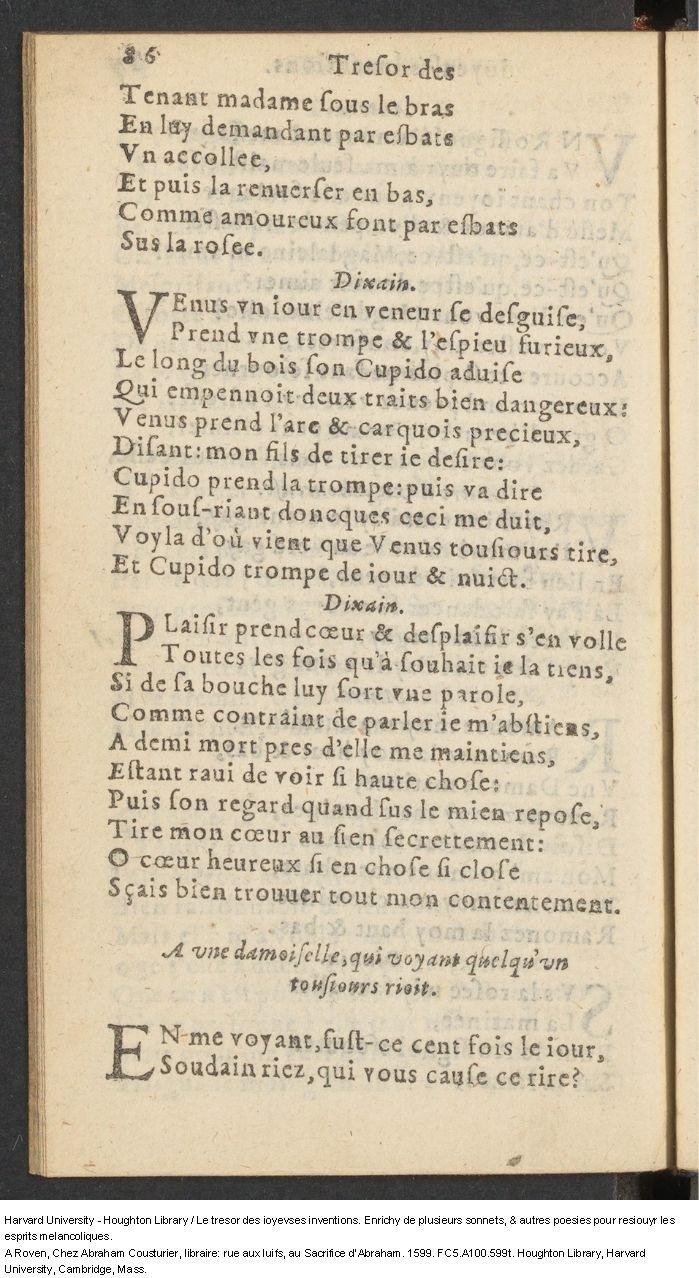 86
Treſor des
Tenant madame ſous le bras
En luy demandant par eſbats
Vn accollee,
Et puis la renuerſer en bas,
Comme amoureux font par eſbats
Sus la roſee.
Dixain.
VEnus vn iour en veneur ſe deſguiſe,
Prend vne trompe & l'eſpieu furieux,
Le long du bois ſon Cupido aduiſe
Qui empennoit deux traits bien dangereux:
Venus prend l'arc & carquois precieux,
Diſant: mon fils de tirer ie deſire:
Cupido prend la trompe: puis va dire
En ſouſ-riant doncques ceci me duit,
Voyla d'où vient que Venus touſiours tire,
Et Cupido trompe de iour & nuict.
Dixain.
PLaiſir prend cœur & deſplaiſir s'en volle
Toutes les fois qu'à ſouhait ie la tiens,
Si de ſa bouche luy ſort vne parole,
Comme contraint de parler ie m'abſtiens,
A demi mort pres d'elle me maintiens,
Eſtant raui de voir ſi haute choſe:
Puis ſon regard quand ſus le mien repoſe,
Tire mon cœur au ſien ſecrettement:
O cœur heureux ſi en choſe ſi cloſe
Sçais bien trouuer tout mon contentement.
A vne damoiſelle, qui voyant quelqu'vn
touſiours rioit.
EN me voyant, fuſt-ce cent fois le iour,
Soudain riez, qui vous cauſe ce rire?
Harvard University - Houghton Library / Le tresor des ioyevses inventions. Enrichy de plusieurs sonnets, & autres poesies pour resiouyr les
esprits melancoliques.
A Roven, Chez Abraham Cousturier, libraire: rue aux Iuifs, au Sacrifice d'Abraham. 1599. FC5.A100.599t. Houghton Library, Harvard
University, Cambridge, Mass.